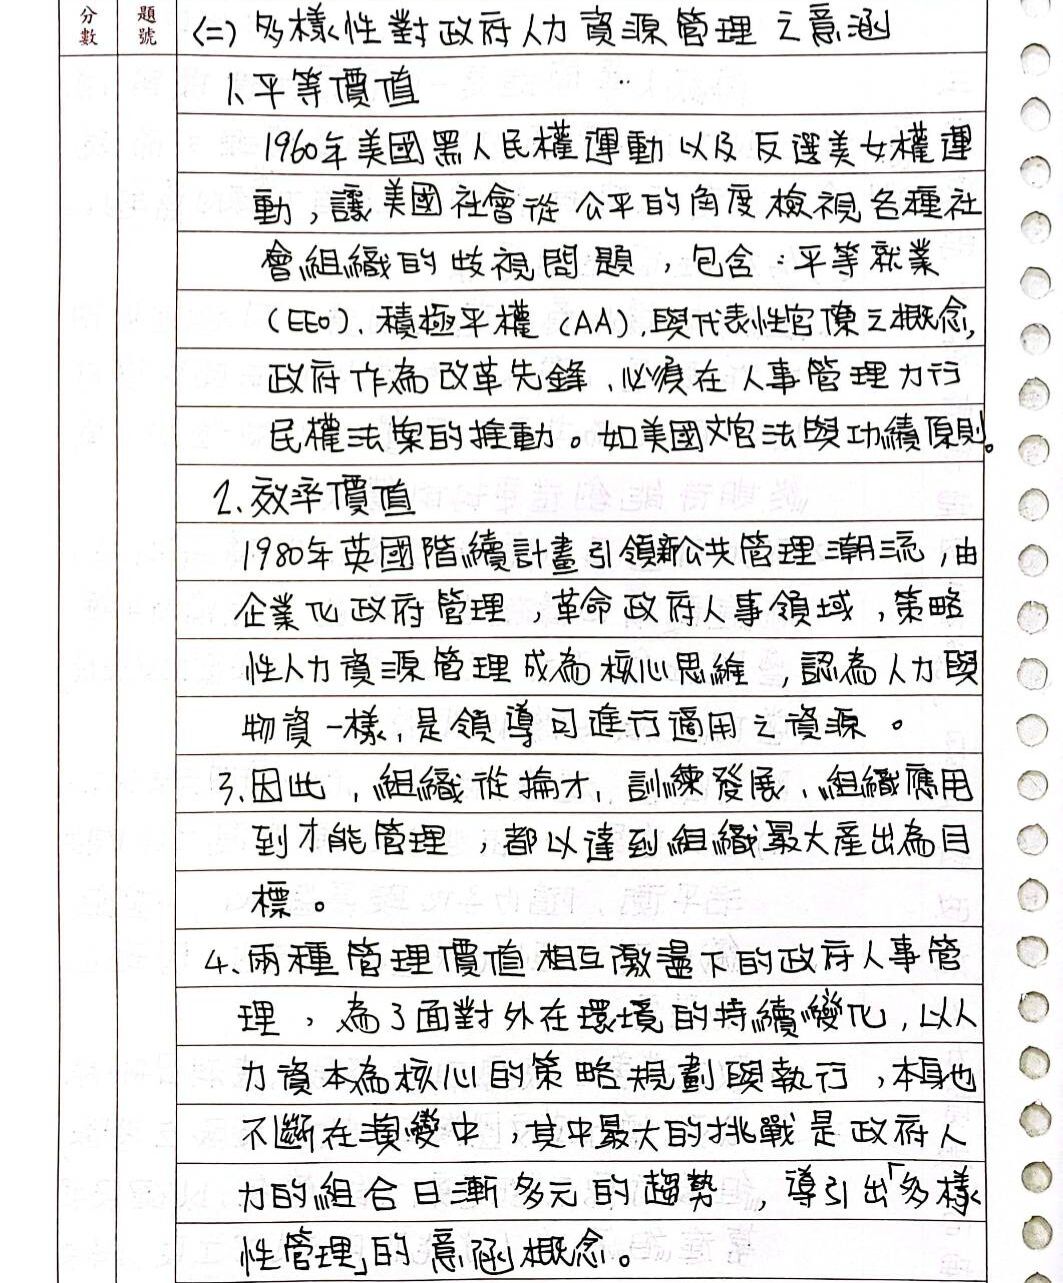 分數
題號
(二) 多樣性對政府人力資源管理之意涵
1、平等價值
1960年美國黑人民權運動以及反選美女權運
動，讓美國社會從公平的角度檢視各種社
會組織的歧視問題，包含：平等就業
(EEO)、積極平權 (AA)、與代表性官僚之概念，
政府作為改革先鋒、必須在人事管理力行
民權法案的推動。如美國文官法與功績原則。
2、效率價值
1980年英國階續計畫引領新公共管理潮流，由
企業化政府管理，革命政府人事領域，策略
性人力資源管理成為核心思維，認為人力與
物資一樣，是領導可進行適用之資源。
3、因此，組織從掄才、訓練發展、組織應用
到才能管理，都以達到組織最大產出為目
標。
4、兩種管理價值相互激盪下的政府人事管
理，為了面對外在環境的持續變化，以人
力資本為核心的策略規劃與執行，本身也
不斷在演變中，其中最大的挑戰是政府人
力的組合日漸多元的趨勢，導引出「多樣
性管理」的意涵概念。